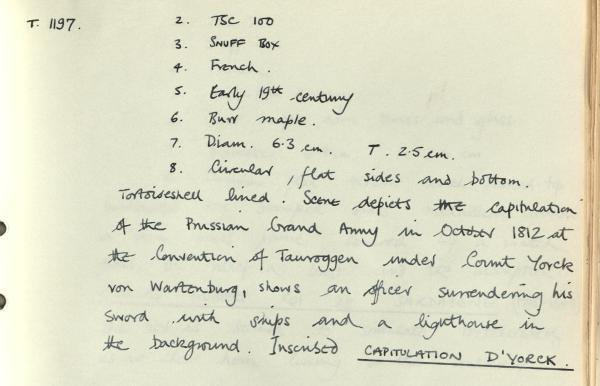 T. 1197.
2. TSC 100
3. SNUFF BOX
4. French.
5. Early 19th century
6. Burr maple.
7. Diam. 6.3 cm. T. 2.5 cm.
8. Circular, flat sides and bottom.
Tortoiseshell lined. Scene depicts the capitulation
of the Prussian Grand Army in October 1812 at
the Convention of Tauroggen under Count Yorck
von Wartenburg, shows an officer surrendering his
sword with ships and a lighthouse in
the background. Inscribed CAPITULATION D'YORCK.